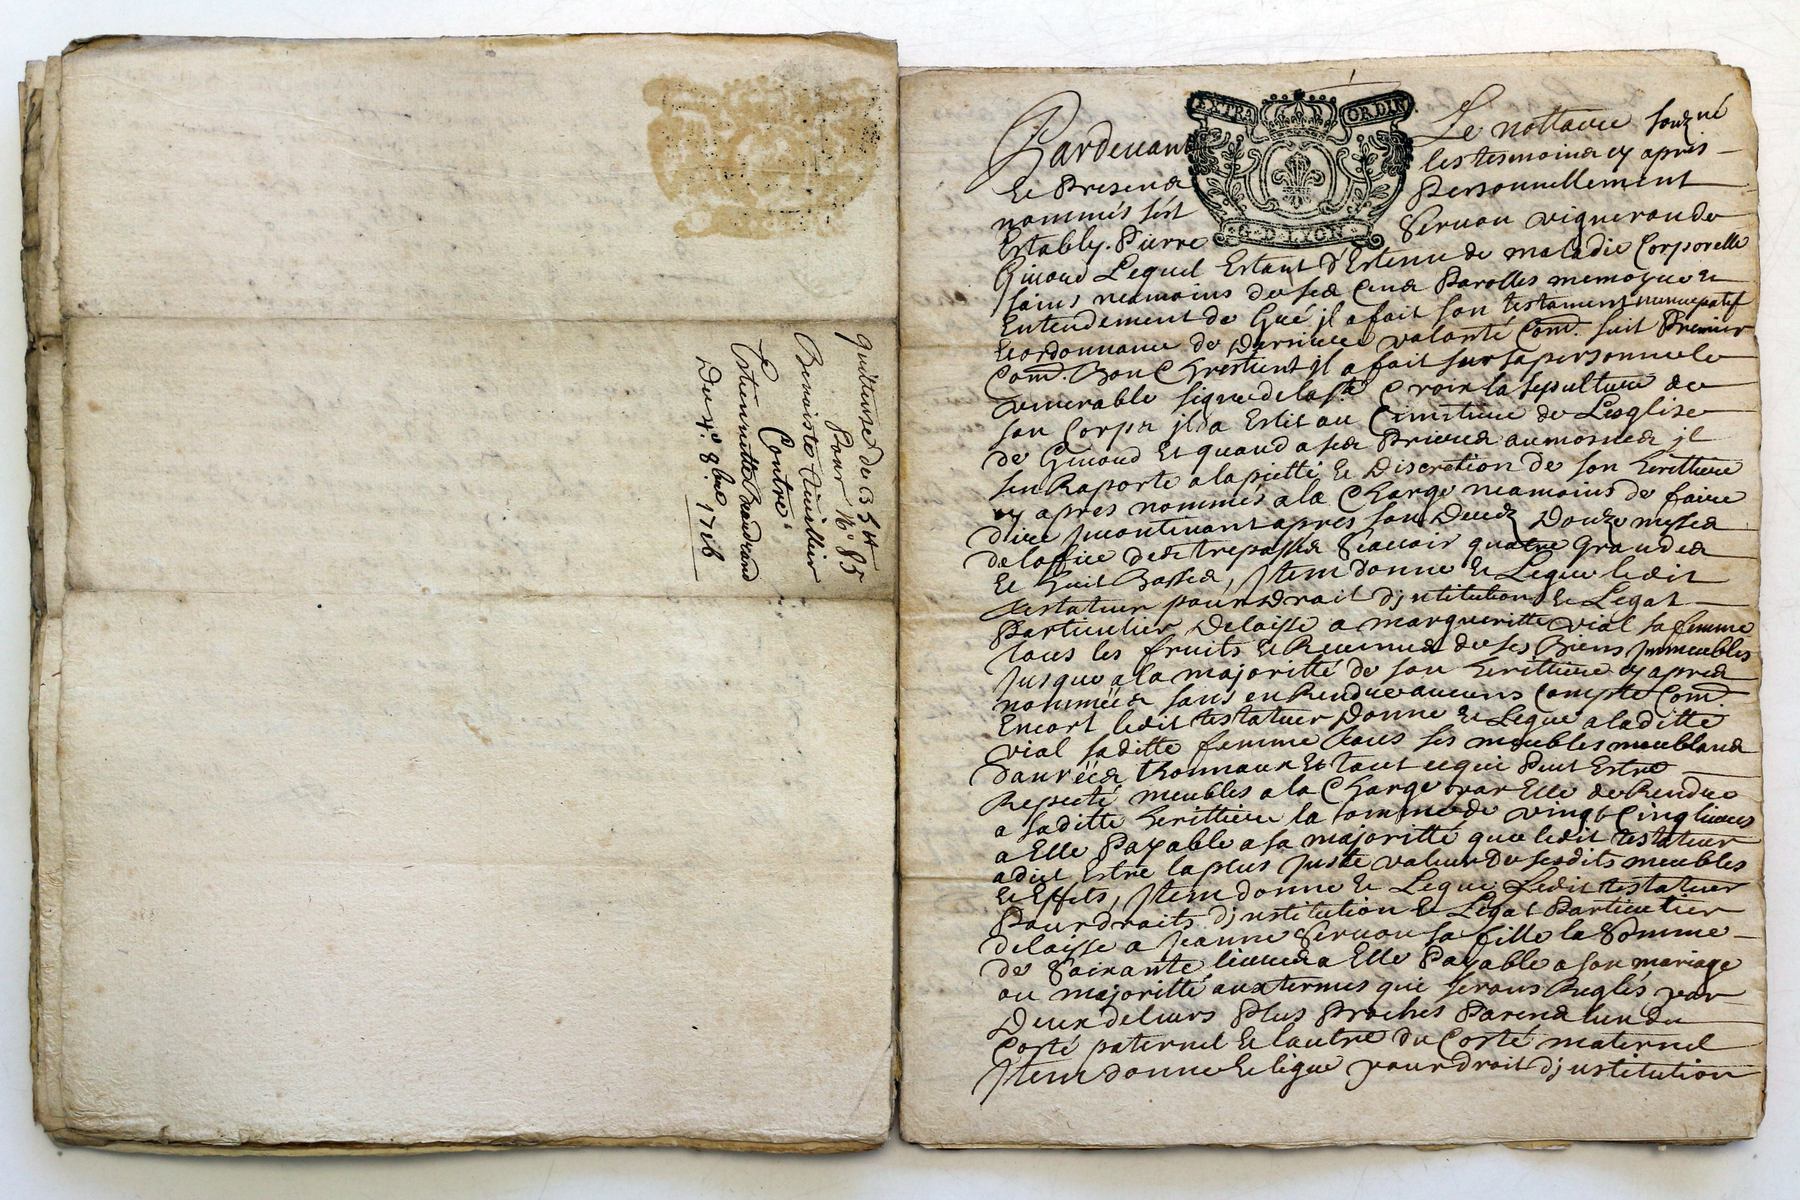 quittance de 135 ₶
Pour N.° 85
Benoiste Cuisilier
Contre
Estiennette Brandrand
Du 4.e 8bre 1716
EXTRA ORDIN
G. D. LYON
Pardevant Le nottaire souzné
Et Presend les tesmoind cy apres
nommés sést Personnellement
Establÿ. Pierre Seruou vigneron de
Giuord Lequel Estant d'Estenu de maladie Corporelle
sains neamoins de ses Cens Parolles memoyre et
Entendement de Gré jl a fait son testament nuncupatif
Et ordonnance de Derniere valonté Com. suit Premier
Com. Bon Chrestient jl a fait sur sa personne le
venerable signe de la ste Croix la sepulture de
son Corps jl la Eslit au Cimitiere de Lesglise
de Giuord Et quand a ses Prieres aumosnes jl
sen Raporte a la pietté et Discretion de son heritiere
cy apres nommés a la Charge neamoins de faire
dire jncontinant apres son Decedz Douze messes
de loffice des trepassés Scauoir quatre grandes
Et huit Basses, jtem donne Et Legue ledit
testateur pour Droit d'jnstitution & Legat
Particulier Delaisse a margueritte vial sa femme
tous les fruits & Reuenus de ses Biens Jmmeubles
Jusque a la majoritté de son heritiere cy apres
nommées sans en Rendre aucuns Compte Com.
Encort ledit testateur Donne Et Legue a laditte
vial saditte femme tous ses meubles meublans
danrées thonnaux Et tout ce qui Peut Estre
Reputé meubles a la Charge par Elle de Rendre
a saditte heritiere la somme de vingt Cinq liures
a Elle Payable a sa majoritté que ledit testateur
a dict Estre la plus Juste valeur de sesdits meubles
Et Effets, jtem donne Et Legue Ledit testateur
Pour droits d'jnstitution & Legat Particulier
delaisse a Jeanne Seruou sa fille la Somme
de Soixante liures a Elle Payable a son mariage
ou majoritté aux termes qui serons Reglés par
Deux de leurs Plus Proches Parens lun du
Costé paternel Et lautre du Costé maternel
Jtem donne Et legue pour droit d'jnstitution